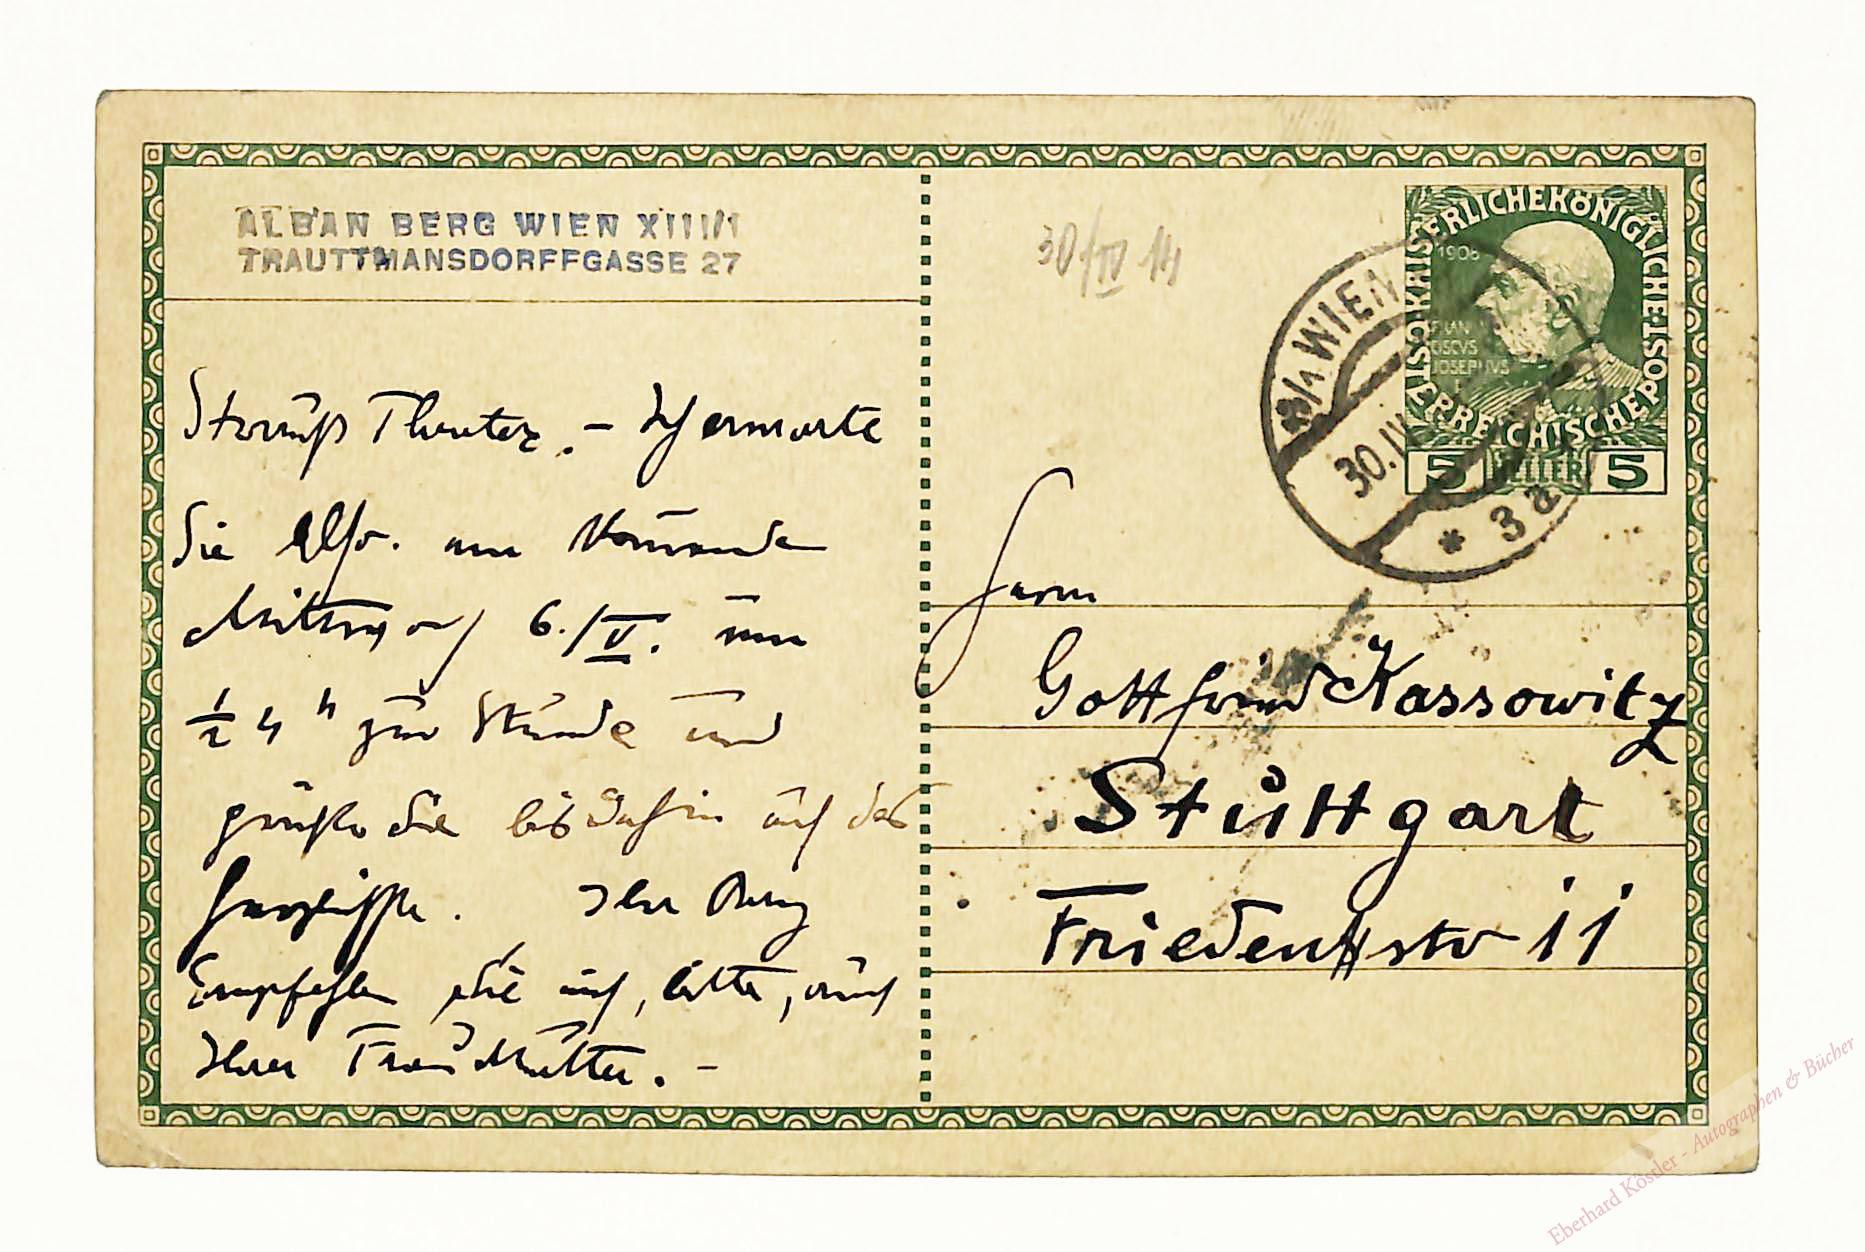 ALBAN BERG WIEN XIII/1
TRAUTTMANSDORFFGASSE 27
Theater. – Ich erwarte
Sie also am kommenden
Mittwoch 6./V. um
½ 4 h zur Stunde und
grüße Sie bis dahin auf das
herzlichste. Ihr Berg
Empfehlen Sie mich, bitte, auch
Ihrer Frau Mutter. –
30/IV 14
KAISERLICHEKÖNIGLICHE
ÖSTERREICHISCHE POST
1908
FRAN
CISCVS
JOSEPHVS
I
5 HELLER 5
WIEN
30.IV
* 3a
Herrn
Gottfried Kassowitz
Stuttgart
Friedenstr 11
Eberhard Köstler - Autographen & Bücher